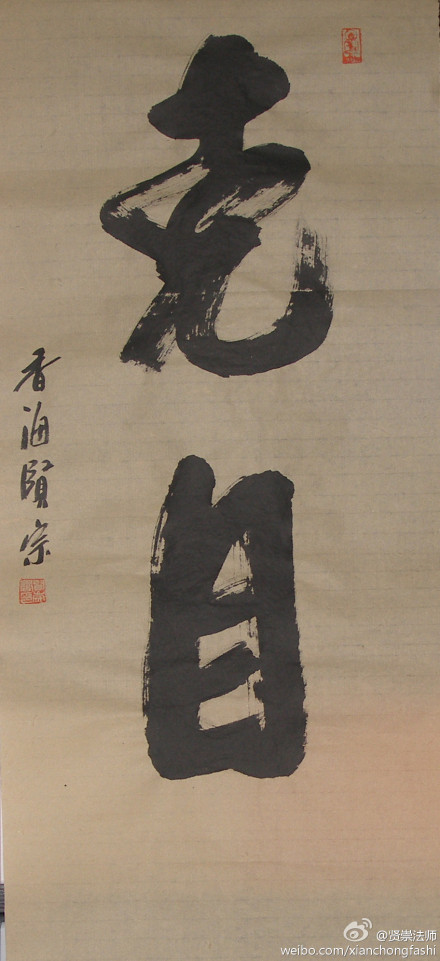 克目
香海賢宗
@贤崇法师
weibo.com/xianchongfashi